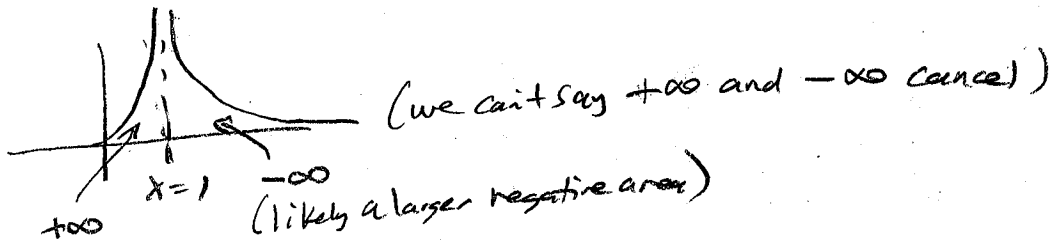 (we can't say +∞ and -∞ cancel)
x=1
-∞
+∞
(likely a larger negative area)